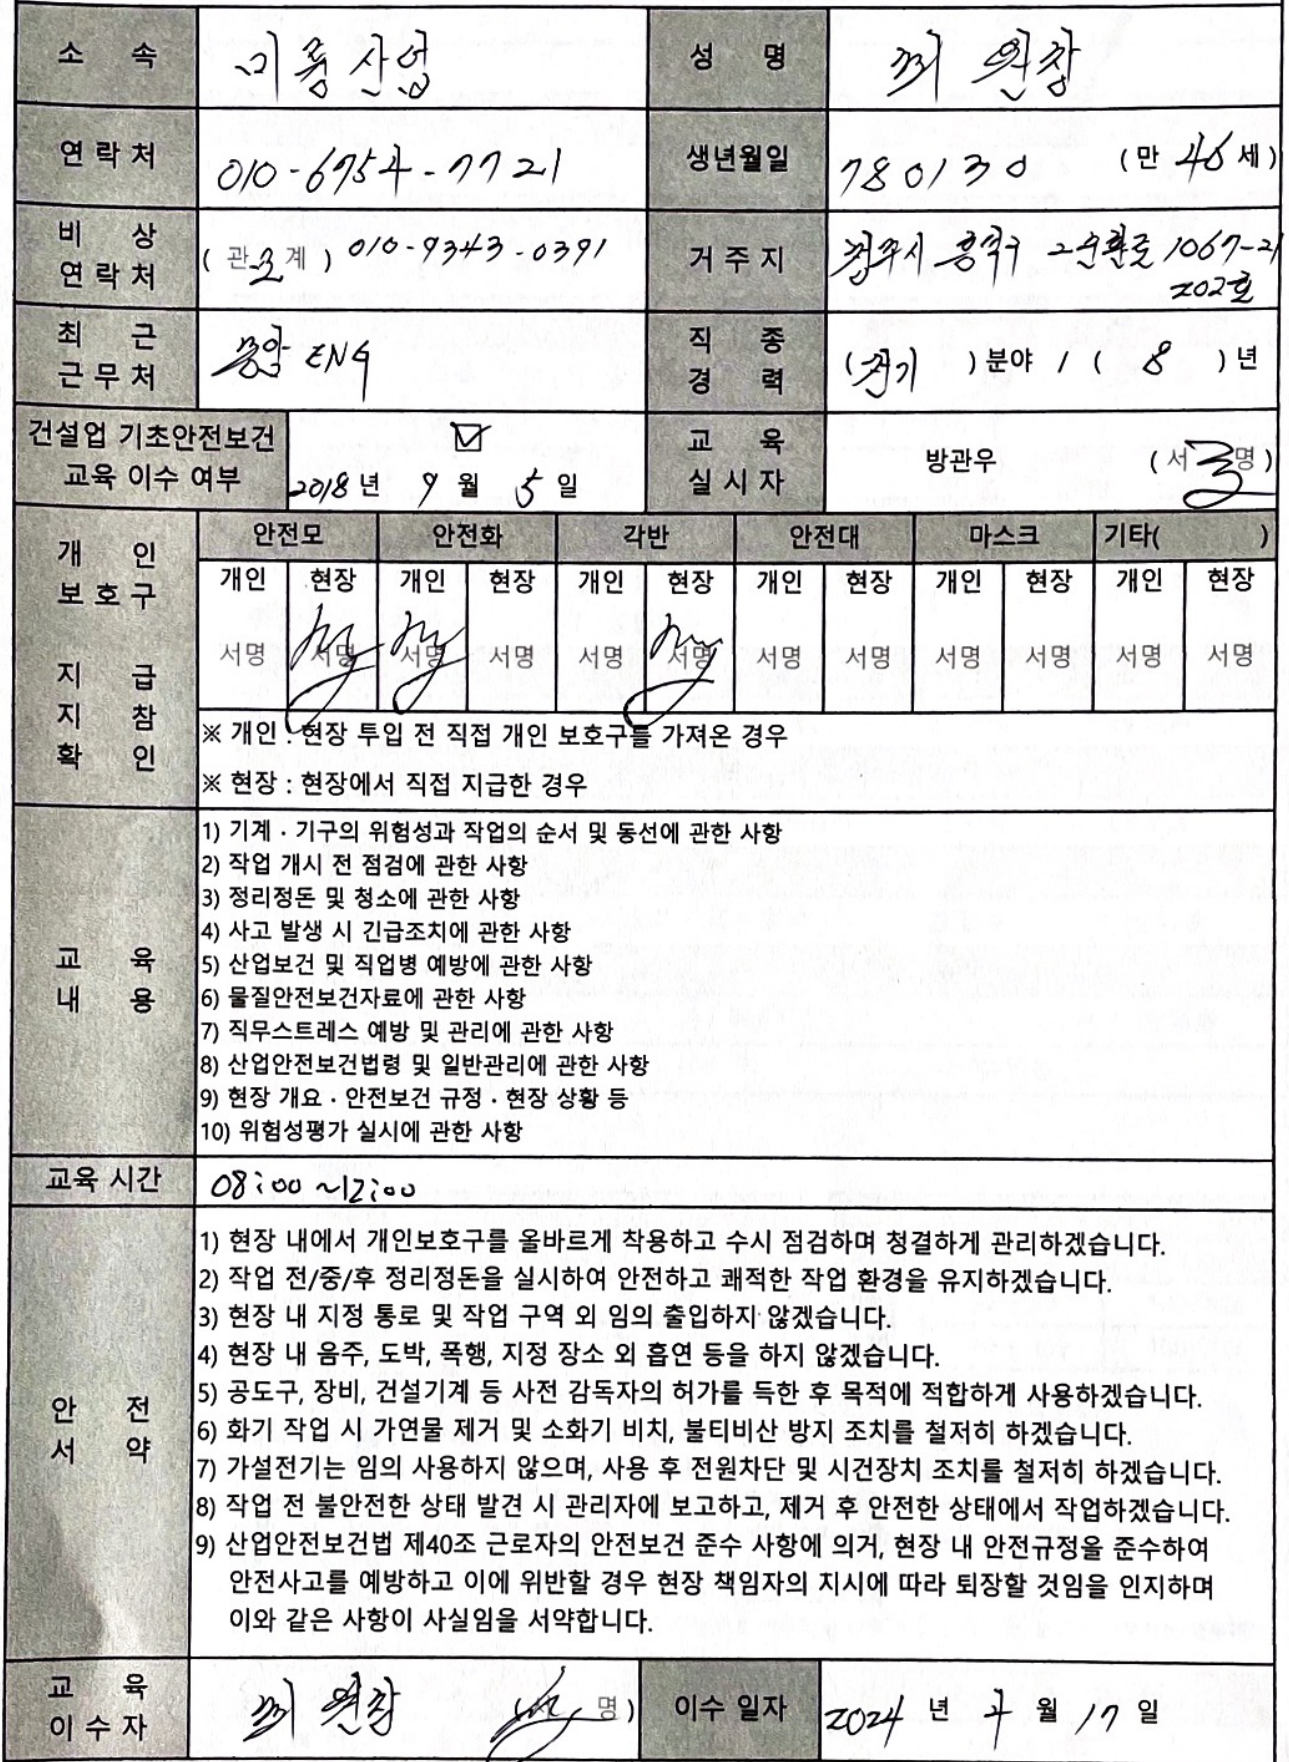 소 속 미중산업 성 명
연락처 010-6754-7721 생년월일 780130 (만 46세)
비 상 연락처 (관계) 010-9343-0391 거주지 청주시 흥덕구 2순환로 1067-21
202호
최 근 근무처 ENG 직 종 경 력 (전기) 분야 / ( 8 ) 년
건설업 기초안전보건 교육 이수 여부 ☑ 2018년 9월 5일 교 육 실시자 방관우 (서명)
개 인 보호구 지 급 지 참 확 인
안전모 안전화 각반 안전대 마스크 기타( )
개인 현장 개인 현장 개인 현장 개인 현장 개인 현장 개인 현장
서명 서명 서명 서명 서명 서명 서명 서명 서명 서명 서명 서명
※ 개인 : 현장 투입 전 직접 개인 보호구를 가져온 경우
※ 현장 : 현장에서 직접 지급한 경우
교 육 내 용
1) 기계 · 기구의 위험성과 작업의 순서 및 동선에 관한 사항
2) 작업 개시 전 점검에 관한 사항
3) 정리정돈 및 청소에 관한 사항
4) 사고 발생 시 긴급조치에 관한 사항
5) 산업보건 및 직업병 예방에 관한 사항
6) 물질안전보건자료에 관한 사항
7) 직무스트레스 예방 및 관리에 관한 사항
8) 산업안전보건법령 및 일반관리에 관한 사항
9) 현장 개요 · 안전보건 규정 · 현장 상황 등
10) 위험성평가 실시에 관한 사항
교육 시간 08:00 ~12:00
안 전 서 약
1) 현장 내에서 개인보호구를 올바르게 착용하고 수시 점검하며 청결하게 관리하겠습니다.
2) 작업 전/중/후 정리정돈을 실시하여 안전하고 쾌적한 작업 환경을 유지하겠습니다.
3) 현장 내 지정 통로 및 작업 구역 외 임의 출입하지 않겠습니다.
4) 현장 내 음주, 도박, 폭행, 지정 장소 외 흡연 등을 하지 않겠습니다.
5) 공도구, 장비, 건설기계 등 사전 감독자의 허가를 득한 후 목적에 적합하게 사용하겠습니다.
6) 화기 작업 시 가연물 제거 및 소화기 비치, 불티비산 방지 조치를 철저히 하겠습니다.
7) 가설전기는 임의 사용하지 않으며, 사용 후 전원차단 및 시건장치 조치를 철저히 하겠습니다.
8) 작업 전 불안전한 상태 발견 시 관리자에 보고하고, 제거 후 안전한 상태에서 작업하겠습니다.
9) 산업안전보건법 제40조 근로자의 안전보건 준수 사항에 의거, 현장 내 안전규정을 준수하여
안전사고를 예방하고 이에 위반할 경우 현장 책임자의 지시에 따라 퇴장할 것임을 인지하며
이와 같은 사항이 사실임을 서약합니다.
교 육 이수자 (서명) 이수 일자 2024 년 4 월 17 일